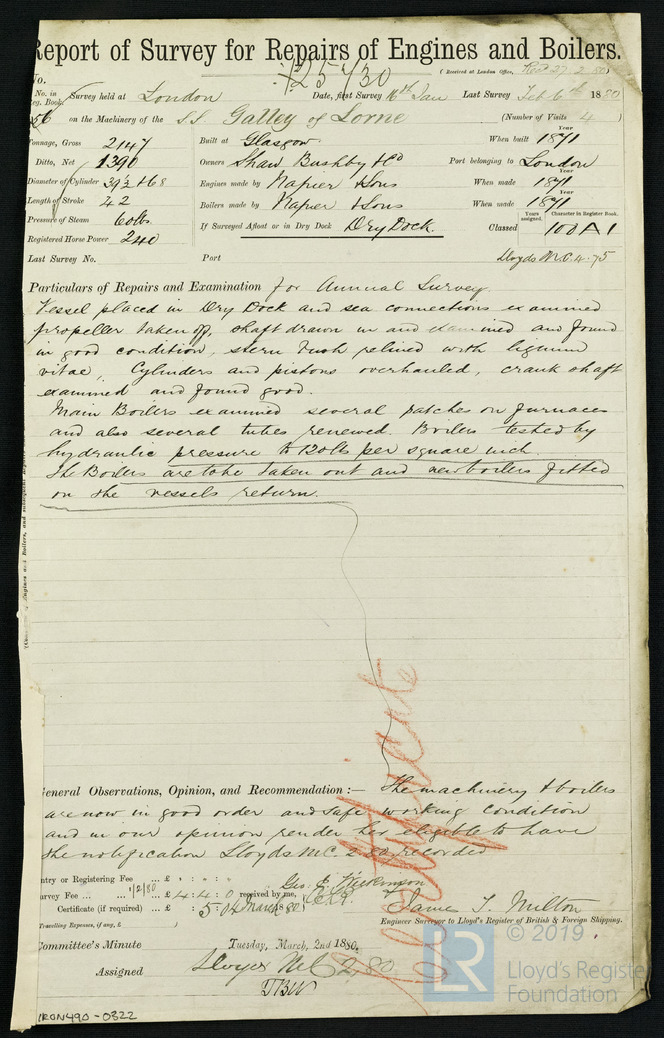 Report of Survey for Repairs of Engines and Boilers.
No. 25730 (Received at London Office, Recd 27.2.80)
No. in Reg. Book. 56 Survey held at London Date, first Survey 16th Jan Last Survey Feb 6th 1880
on the Machinery of the S.S. Galley of Lorne (Number of Visits 4)
Tonnage, Gross 2147 Built at Glasgow When built Year 1871
Ditto, Net 1390 Owners Shaw Bushby & Co Port belonging to London
Diameter of Cylinder 39½ & 68 Engines made by Napier & Sons When made Year 1871
Length of Stroke 42 Boilers made by Napier & Sons When made Year 1871
Pressure of Steam 60 lbs. If Surveyed Afloat or in Dry Dock Dry Dock. Classed Years assigned. Character in Register Book. 100 A 1
Registered Horse Power 240
Last Survey No. Port Lloyds M.C. 4.75
Particulars of Repairs and Examination for Annual Survey
Vessel placed in Dry Dock and sea connections examined
propeller taken off, shaft drawn in and examined and found
in good condition, stern bush relined with lignum
vitae, Cylinders and pistons overhauled, crank shaft
examined and found good.
Main Boilers examined several patches on furnaces
and also several tubes renewed. Boilers tested by
hydraulic pressure to 120 lbs per square inch.
The Boilers are to be taken out and new boilers fitted
on the vessels return.
Certificate
General Observations, Opinion, and Recommendation:— The machinery & boilers
are now in good order and safe working condition
and in our opinion render her eligible to have
the notification Lloyds M.C. 2.80 recorded
Entry or Registering Fee ... £ : : Geo. E. Wilkinson
Survey Fee ... 1/2/80 ... £ 4 : 4 : 0 received by me,
Certificate (if required) .. £ : 5 : 0 4 March 1880 James T. Milton
(Travelling Expenses, if any, £ ) Engineer Surveyor to Lloyd's Register of British & Foreign Shipping.
Committee's Minute Tuesday, March, 2nd 1880.
Assigned Lloyds M.C. 2.80
TBW
IRON490-0322
LR © 2019
Lloyd's Register
Foundation